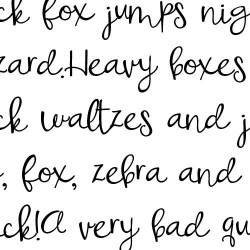 ck fox jumps nig
zard.Heavy boxes
ck waltzes and j
, fox, zebra and
ck!A very bad qu